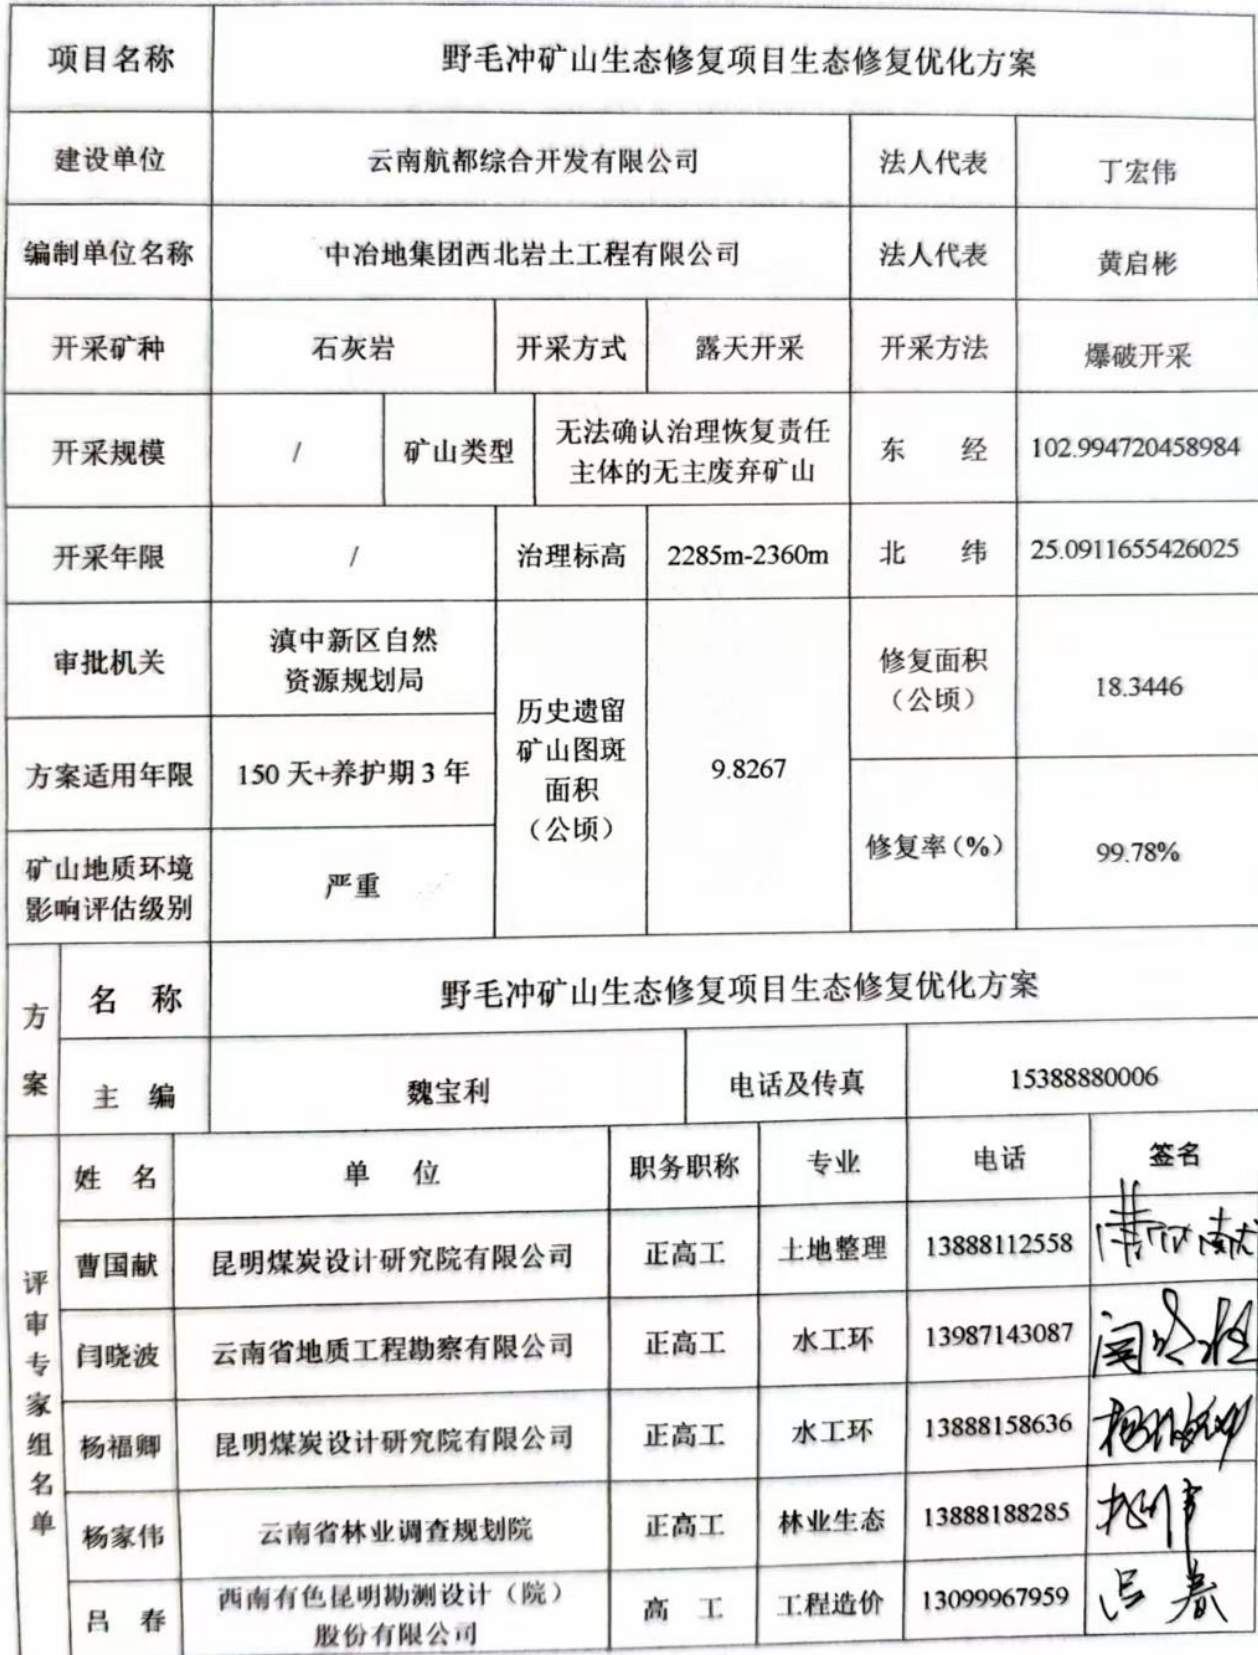 项目名称 野毛冲矿山生态修复项目生态修复优化方案
建设单位 云南航都综合开发有限公司 法人代表 丁宏伟
编制单位名称 中冶地集团西北岩土工程有限公司 法人代表 黄启彬
开采矿种 石灰岩 开采方式 露天开采 开采方法 爆破开采
开采规模 / 矿山类型 无法确认治理恢复责任
主体的无主废弃矿山 东 经 102.994720458984
开采年限 / 治理标高 2285m-2360m 北 纬 25.0911655426025
审批机关 滇中新区自然
资源规划局
历史遗留
矿山图斑
面积
（公顷） 9.8267
修复面积
（公顷） 18.3446
方案适用年限 150 天+养护期 3 年
修复率（%） 99.78%
矿山地质环境
影响评估级别 严重
方案
名 称 野毛冲矿山生态修复项目生态修复优化方案
主 编 魏宝利 电话及传真 15388880006
评审专家组名单
姓 名 单 位 职务职称 专业 电话 签名
曹国献 昆明煤炭设计研究院有限公司 正高工 土地整理 13888112558 曹国献
闫晓波 云南省地质工程勘察有限公司 正高工 水工环 13987143087 闫晓波
杨福卿 昆明煤炭设计研究院有限公司 正高工 水工环 13888158636 杨福卿
杨家伟 云南省林业调查规划院 正高工 林业生态 13888188285
吕 春 西南有色昆明勘测设计（院）
股份有限公司 高 工 工程造价 13099967959 吕春